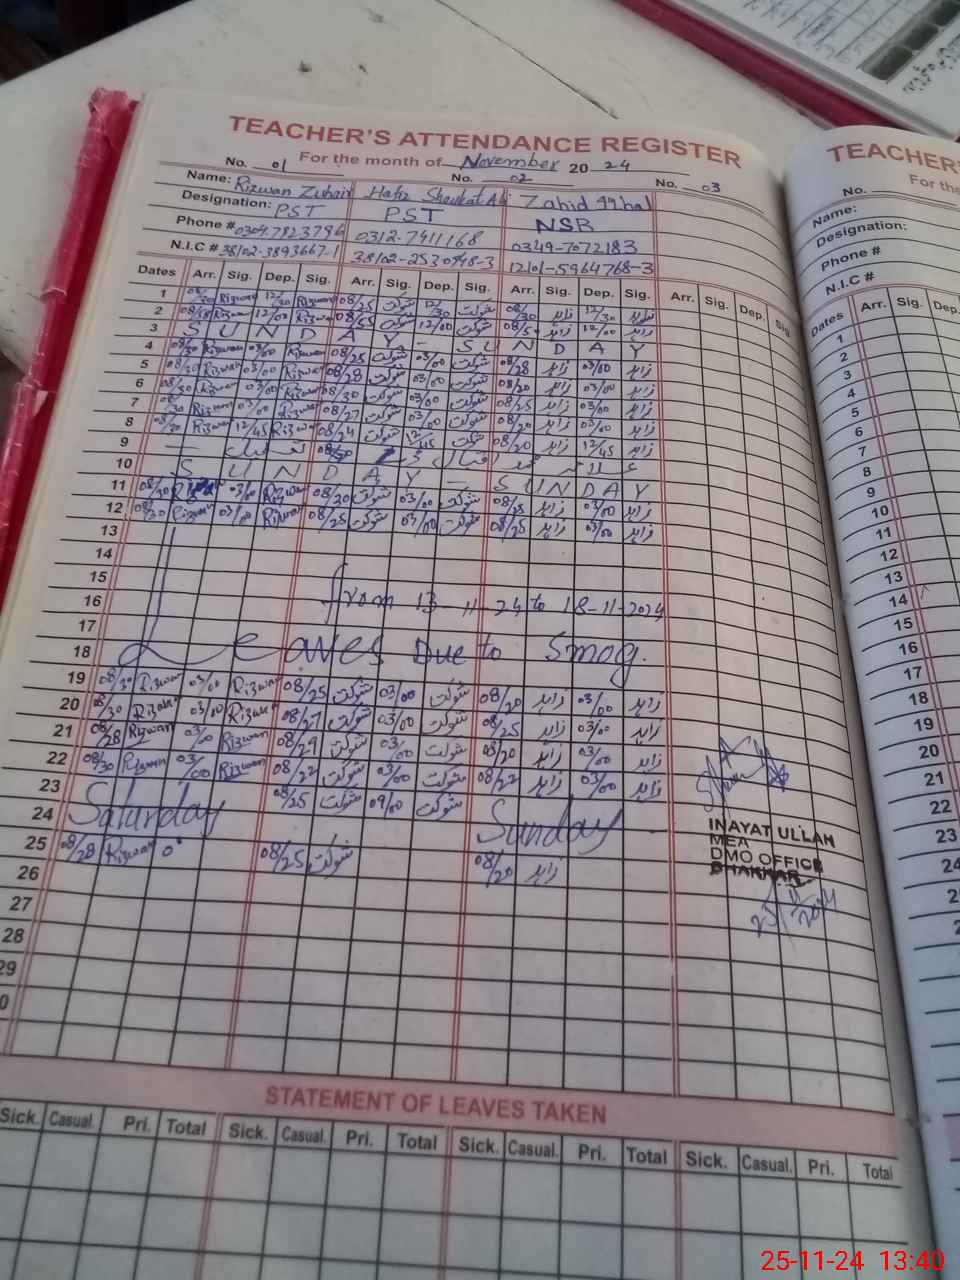 TEACHER'S ATTENDANCE REGISTER
For the month of November 20 24
No. 01 No. 02 No. 03
Name: Rizwan Zuhair Hafiz Shoukat Ali Zahid Iqbal
Designation: PST PST NSB
Phone # 0304.7823796 0312-7411168 0349-7072183
N.I.C # 38102-3893667-1 38102-2530948-3 12101-5964768-3
Dates Arr. Sig. Dep. Sig. Arr. Sig. Dep. Sig. Arr. Sig. Dep. Sig. Arr. Sig. Dep. Sig.
1 08/30 Rizwan 12/30 Rizwan 08/25 شوکت 12/30 شوکت 08/30 زاہد 12/30 زاہد
2 Rizwan 12/00 Rizwan شوکت 12/00 شوکت زاہد 12/00 زاہد
3 SUNDAY - SUNDAY
4 08/30 Rizwan 03/00 Rizwan 08/25 شوکت 03/00 شوکت 08/28 زاہد 03/00 زاہد
5 08/30 Rizwan 03/00 Rizwan 08/28 شوکت 03/00 شوکت 08/20 زاہد 03/00 زاہد
6 08/30 Rizwan 03/00 Rizwan 08/30 شوکت 03/00 شوکت 08/25 زاہد 03/00 زاہد
7 08/30 Rizwan 03/00 Rizwan 08/27 شوکت 03/00 شوکت 08/20 زاہد 03/00 زاہد
8 08/20 Rizwan 12/45 Rizwan 08/24 شوکت 12/45 شوکت 08/20 زاہد 12/45 زاہد
9 علامہ محمد اقبال تعطیل
10 SUNDAY - SUNDAY
11 08/30 03/00 Rizwan 08/20 شوکت 03/00 شوکت 08/28 زاہد 03/00 زاہد
12 08/30 Rizwan 03/00 Rizwan 08/25 شوکت 03/00 شوکت 08/25 زاہد 03/00 زاہد
13
14
15
16 from 13-11-24 to 18-11-2024
17
18 Leaves Due to Smog.
19 08/30 Rizwan 03/00 Rizwan 08/25 شوکت 03/00 شوکت 08/20 زاہد 03/00 زاہد
20 08/30 Rizwan 03/00 Rizwan 08/27 شوکت 03/00 شوکت 08/25 زاہد 03/00 زاہد
21 08/28 Rizwan 03/00 Rizwan 08/29 شوکت 03/00 شوکت 08/20 زاہد 03/00 زاہد
22 08/30 Rizwan 03/00 Rizwan 08/22 شوکت 03/00 شوکت 08/22 زاہد 03/00 زاہد
23 Saturday 08/25 شوکت 09/00 شوکت
24 Sunday
25 08/28 Rizwan 08/25 شوکت 08/20 زاہد
26
27
28
29
INAYAT ULLAH
MEA
DMO OFFICE
BHAKKAR
25/11/2024
STATEMENT OF LEAVES TAKEN
Sick. Casual. Pri. Total Sick. Casual. Pri. Total Sick. Casual. Pri. Total Sick. Casual. Pri. Total
TEACHER'S
No.
For the
Name:
Designation:
Phone #
N.I.C #
Dates Arr. Sig. Dep.
1
2
3
4
5
6
7
8
9
10
11
12
13
14
15
16
17
18
19
20
21
22
23
24
25-11-24 13:40